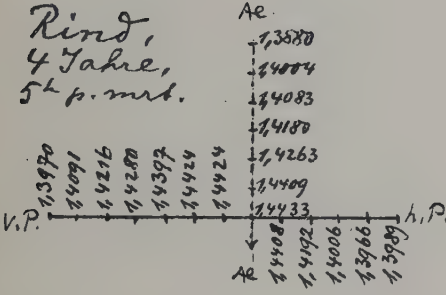 Rind,
4 Jahre,
5h p. mrt.
Ae.
1,3880
1,4004
1,4083
1,4180
1,4263
1,4409
1,4433
1,3970
1,4091
1,4216
1,4280
1,4397
1,4424
1,4424
v.P.
h.P.
1,4408
1,4192
1,4006
1,3966
1,3989
Ae